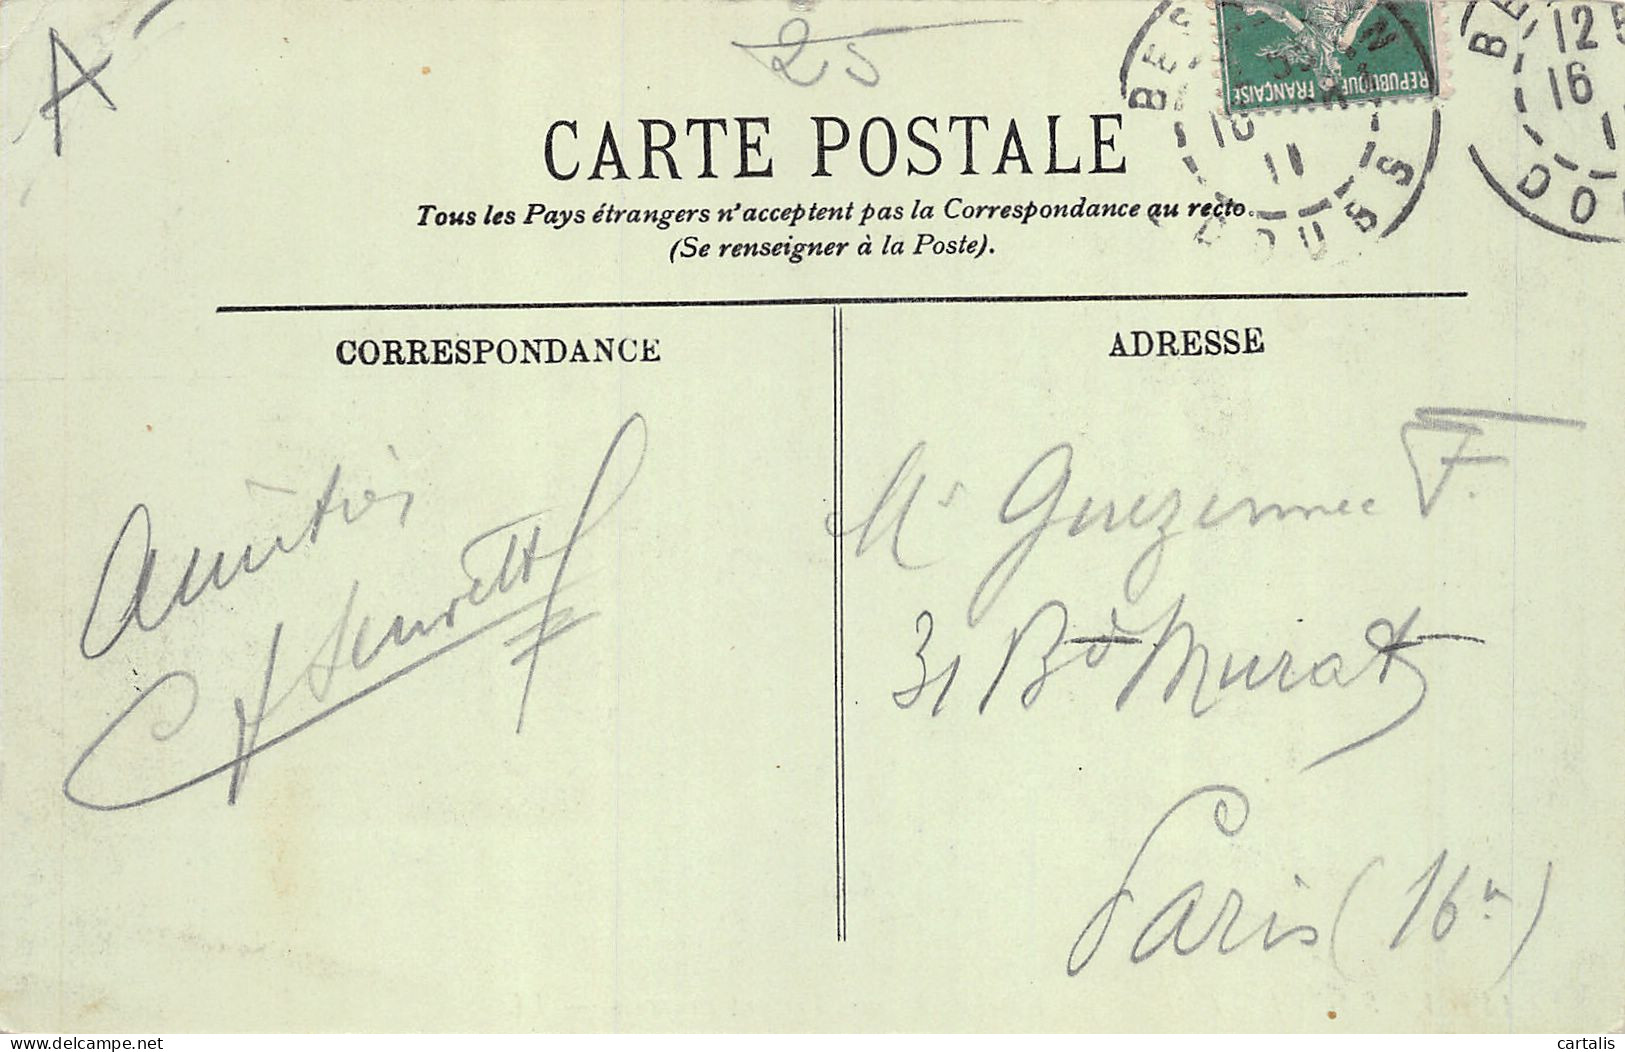 A
25
CARTE POSTALE
Tous les Pays étrangers n'acceptent pas la Correspondance au recto.
(Se renseigner à la Poste).
REPUBLIQUE FRANÇAISE
BES
DOUBS
11
12
16
CORRESPONDANCE
Amitiés
ADRESSE
Mr Guezennec F.
31 Bd Murat
Paris (16e)
delcampe.net
cartalis